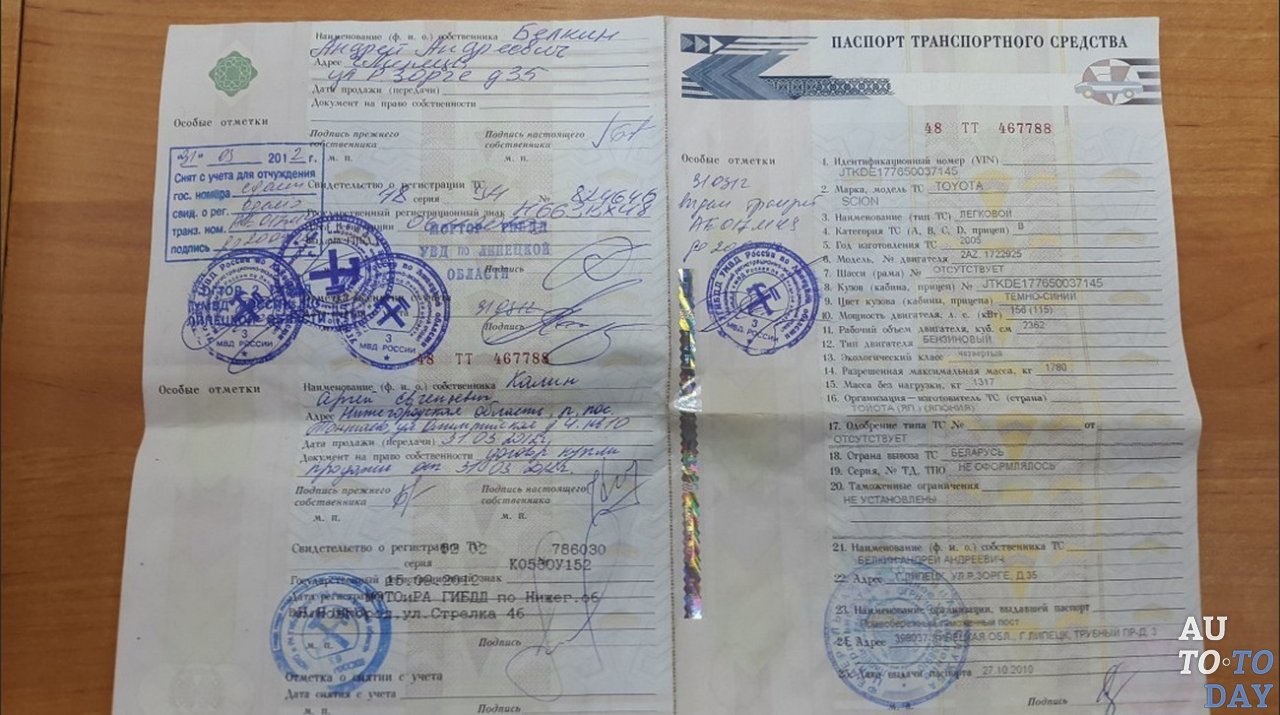 Наименование (ф. и. о.) собственника Белкин
Андрей Андреевич
Адрес г. Липецк
ул Р. ЗОРГЕ д 35
Дата продажи (передачи)
Документ на право собственности
Особые отметки
Подпись прежнего собственника
Подпись настоящего собственника
м. п.
м. п.
31 03 2012 г.
Снят с учета для отчуждения
гос. номера сданы
свид. о рег. сдано
транз. ном.
подпись
Свидетельство о регистрации ТС
48 серия
№
Государственный регистрационный знак
МОТОР ГИБДД
УВД по ЛИПЕЦКОЙ
ОБЛАСТИ
Подпись
310312
Подпись
МВД РОССИИ
3
МВД РОССИИ
48 ТТ 467788
Особые отметки
Наименование (ф. и. о.) собственника Калин
Сергей Евгеньевич
Адрес Нижегородская область, р. пос.
Дата продажи (передачи) 31.03.2012г.
Документ на право собственности договор купли
продажи от 31.03.2012г.
Подпись прежнего собственника
Подпись настоящего собственника
м. п.
м. п.
Свидетельство о регистрации ТС
серия 786030
К053ОУ152
Государственный регистрационный знак
15.09.2012
МОТОиРА ГИБДД по Нижег.об
ул.Стрелка 46
м. п.
Подпись
Отметка о снятии с учета
Дата снятия с учета
м. п.
Подпись
ПАСПОРТ ТРАНСПОРТНОГО СРЕДСТВА
48 ТТ 467788
Особые отметки
310312
3
МВД РОССИИ
1. Идентификационный номер (VIN)
JTKDE177650037145
2. Марка, модель ТС TOYOTA
SCION
3. Наименование (тип ТС) ЛЕГКОВОЙ
4. Категория ТС (А, В, С, D, прицеп) В
5. Год изготовления ТС 2005
6. Модель, № двигателя 2AZ, 1722925
7. Шасси (рама) № ОТСУТСТВУЕТ
8. Кузов (кабина, прицеп) № JTKDE177650037145
9. Цвет кузова (кабины, прицепа) ТЕМНО-СИНИЙ
10. Мощность двигателя, л. с. (кВт) 156 (115)
11. Рабочий объем двигателя, куб. см 2362
12. Тип двигателя БЕНЗИНОВЫЙ
13. Экологический класс четвертый
14. Разрешенная максимальная масса, кг 1780
15. Масса без нагрузки, кг 1317
16. Организация—изготовитель ТС (страна)
ТОЙОТА (ЯП.) (ЯПОНИЯ)
17. Одобрение типа ТС № от
ОТСУТСТВУЕТ
18. Страна вывоза ТС БЕЛАРУСЬ
19. Серия, № ТД, ТПО НЕ ОФОРМЛЯЛОСЬ
20. Таможенные ограничения
НЕ УСТАНОВЛЕНЫ
21. Наименование (ф. и. о.) собственника ТС
БЕЛКИН АНДРЕЙ АНДРЕЕВИЧ
22. Адрес Г.ЛИПЕЦК, УЛ.Р.ЗОРГЕ, Д.35
23. Наименование организации, выдавшей паспорт
Правобережный таможенный пост
24. Адрес 398037, ЛИПЕЦКАЯ ОБЛ., Г.ЛИПЕЦК, ТРУБНЫЙ ПР-Д, 3
25. Дата выдачи паспорта 27.10.2010
м. п.
Подпись
AU
TO TO
DAY